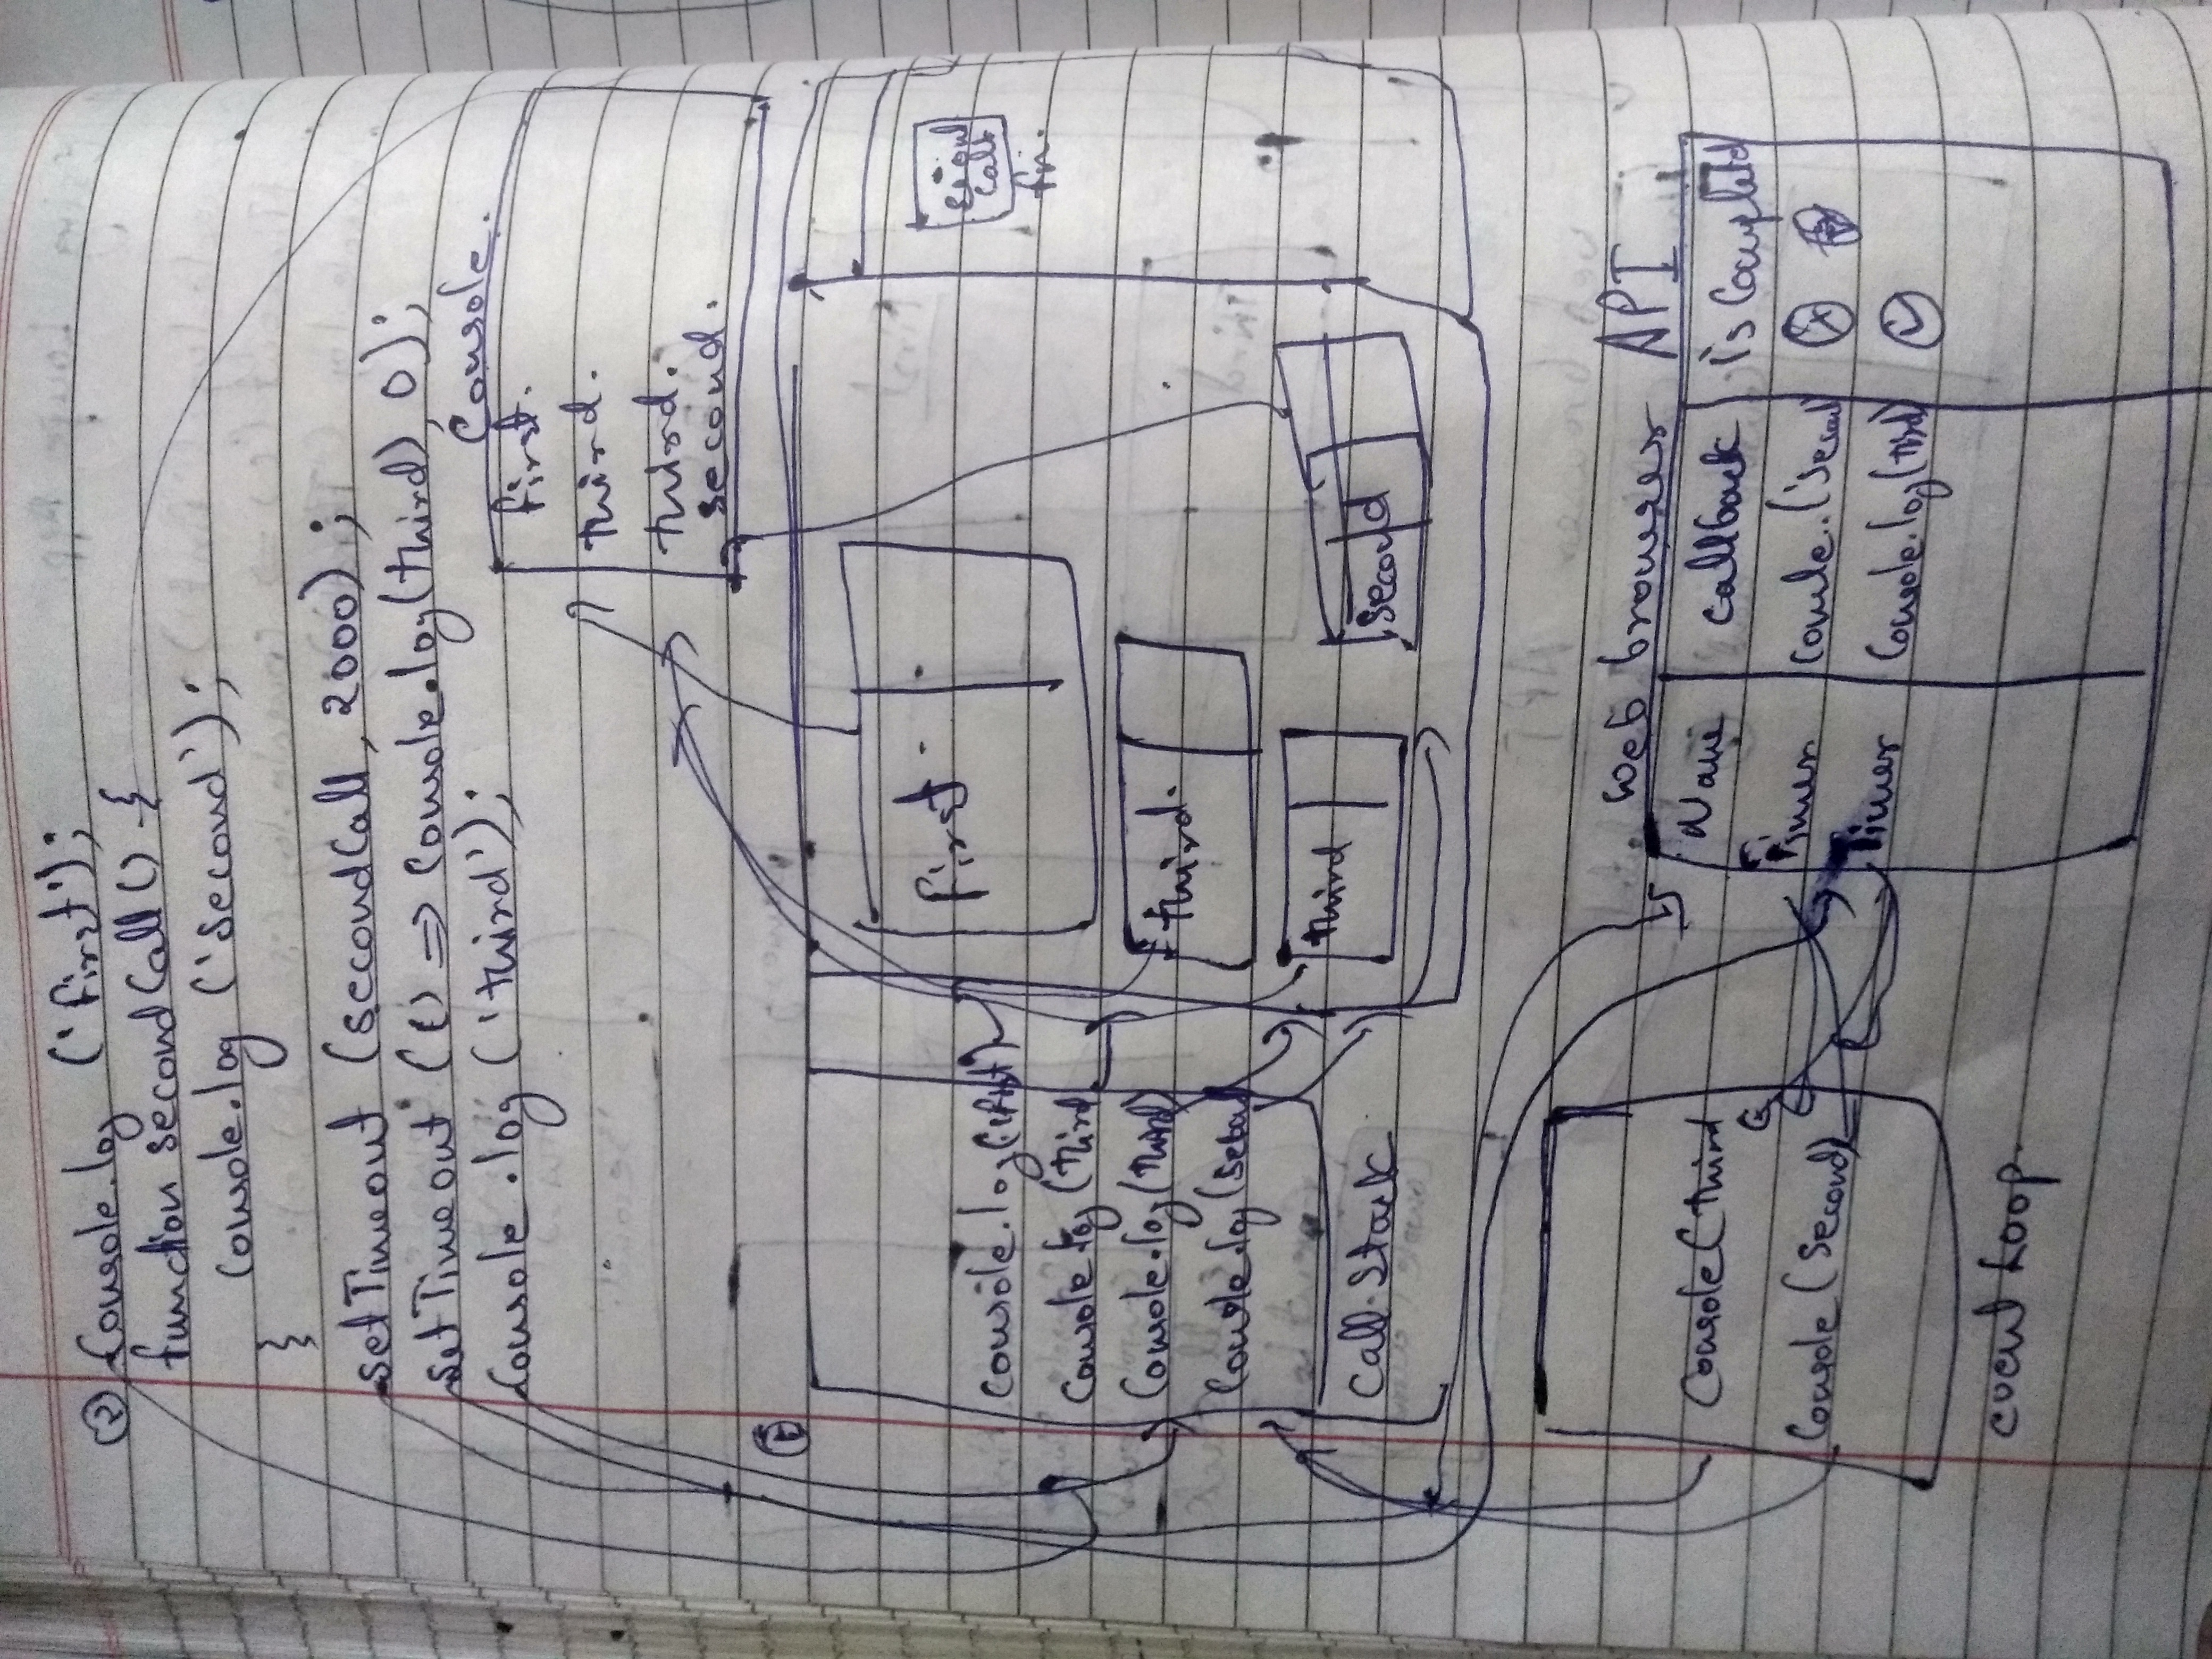 ② Console.log ('first');
function secondCall () {
console.log ('second');
}
setTimeout (secondCall, 2000);
setTimeout (() => console.log(third), 0);
Console.log ('third');
Console.
first.
third.
third.
second.
first
Console.log(first)
Console.log (third
Console.log(third)
Console.log(
call stack
third.
third
second
call
fn.
Web browser API
Name callback is Completed
Timer
Timer Console.log(third)
Console (third
Console (second)
event Loop.